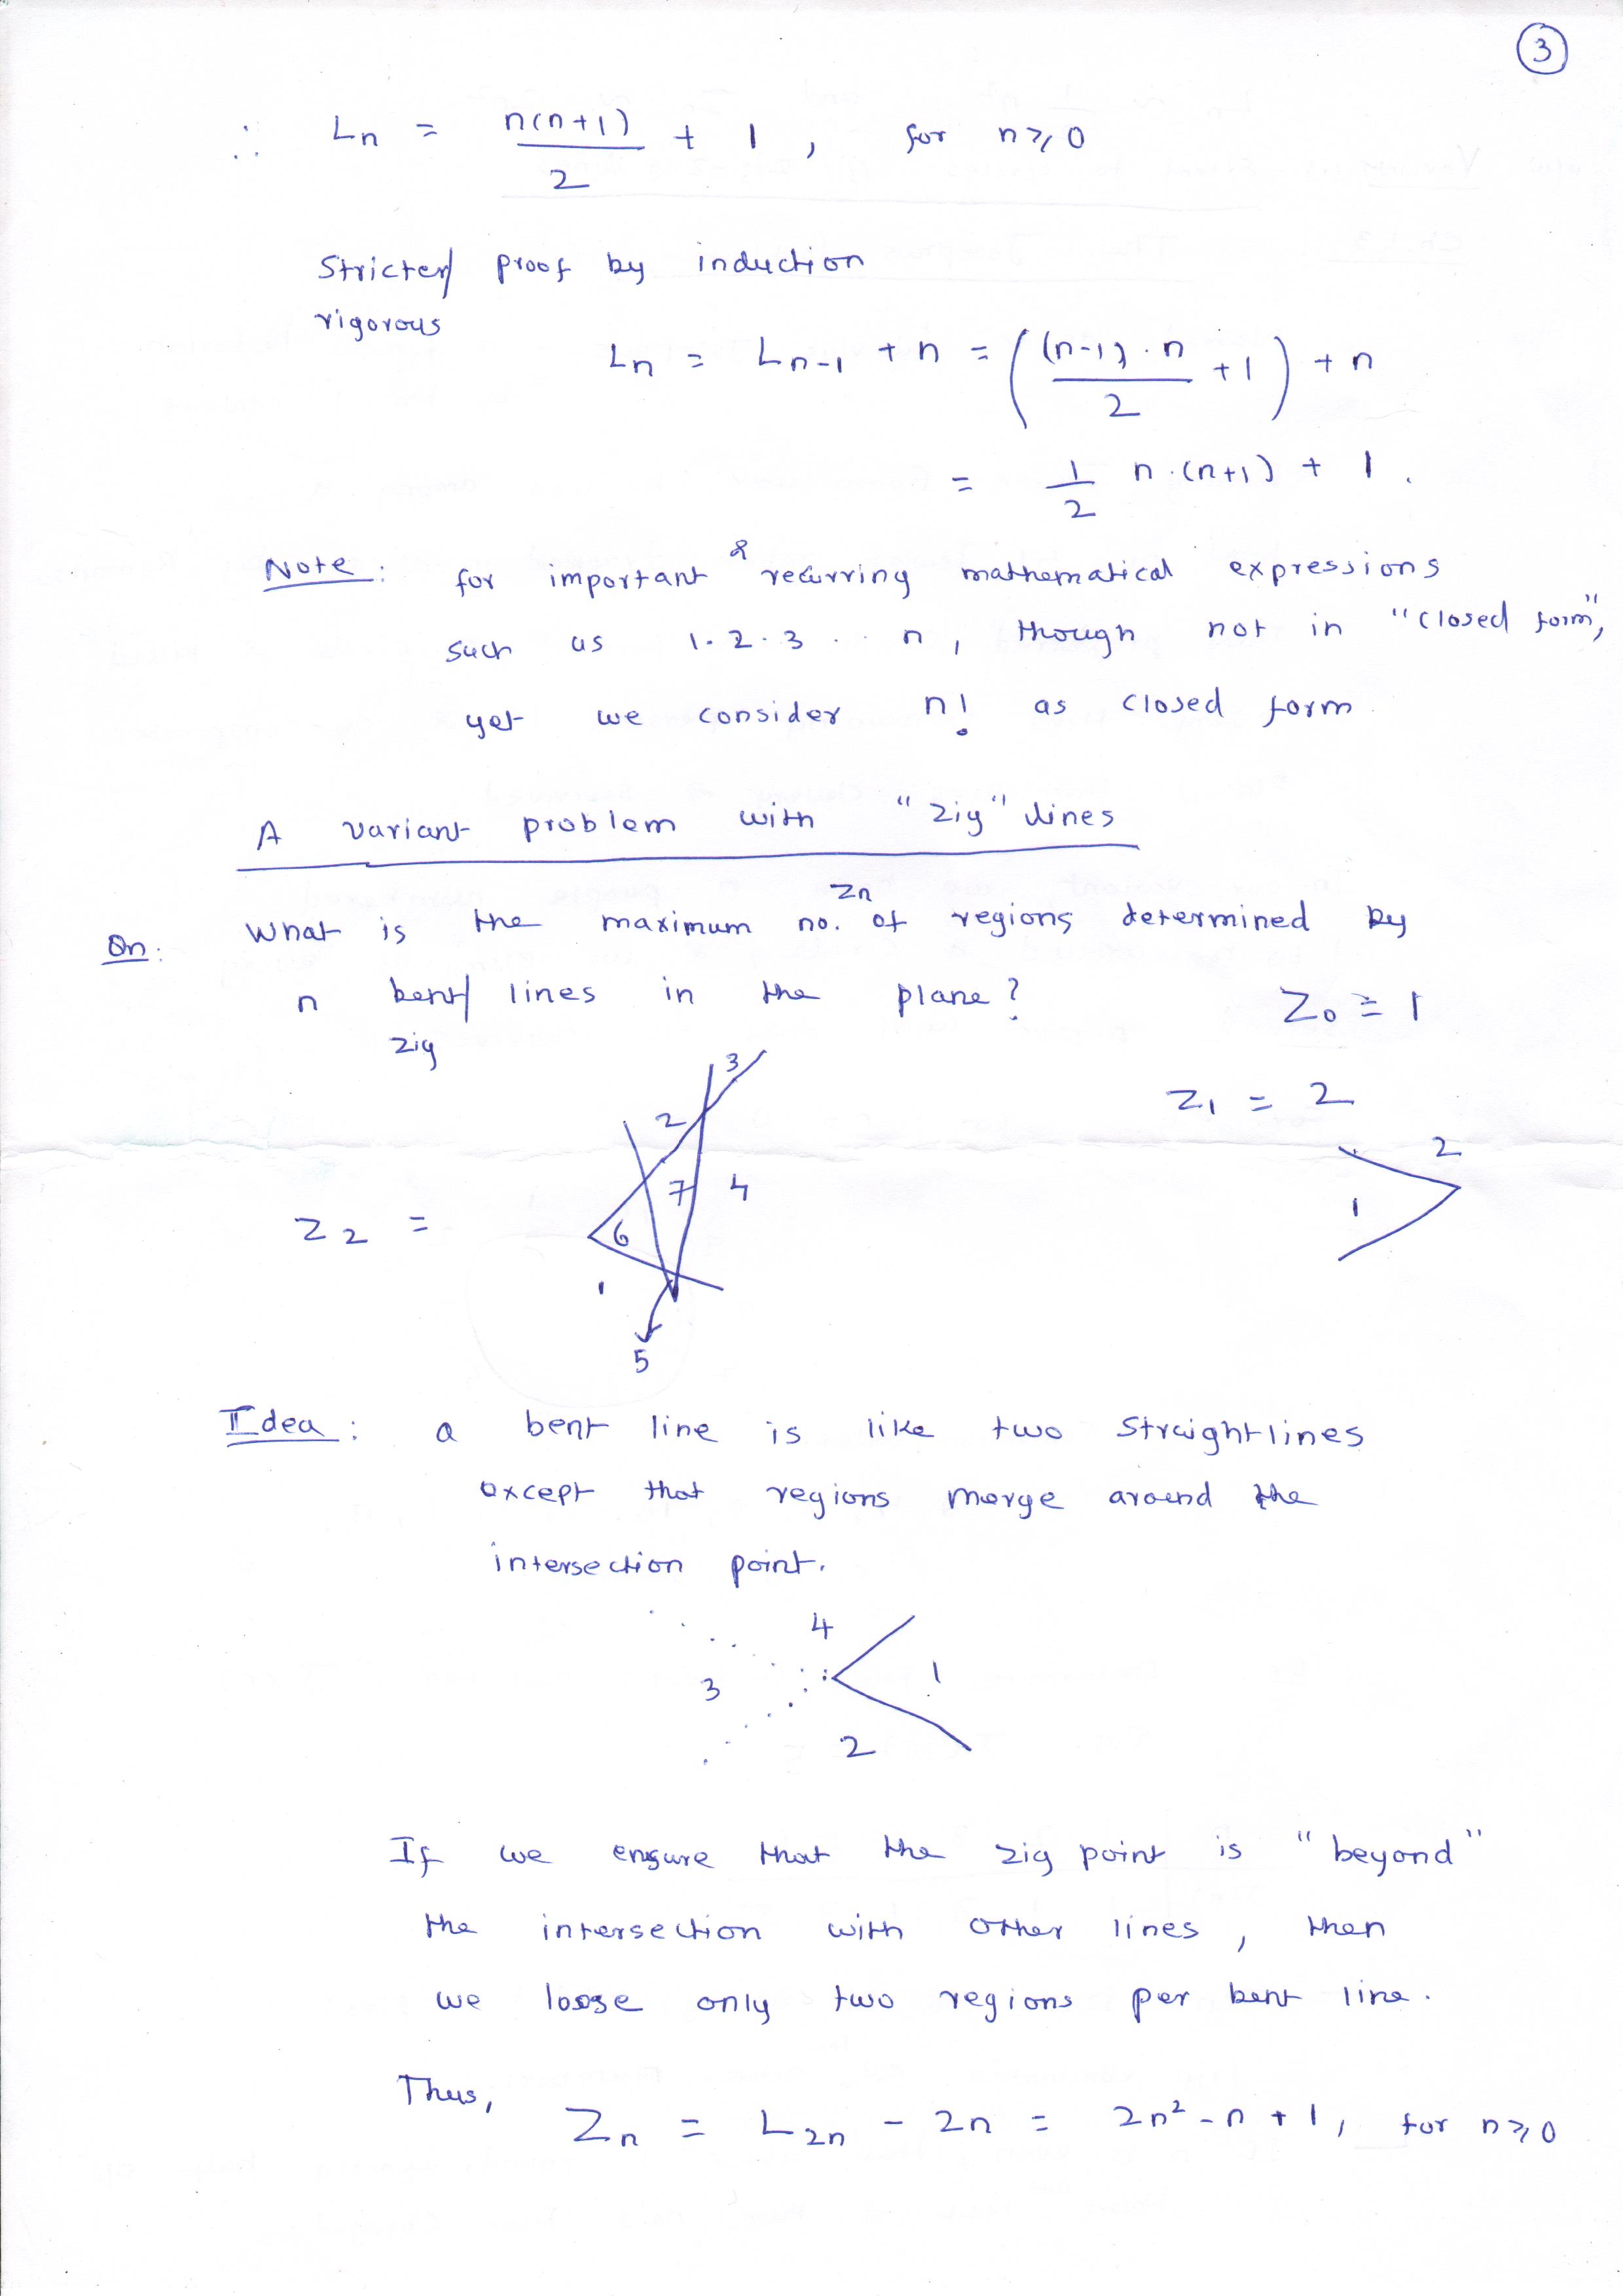 3
∴ Ln = n(n+1)/2 + 1, for n ≥ 0
Stricter/ proof by induction
rigorous
Ln = Ln-1 + n = ((n-1).n/2 + 1) + n
= 1/2 n.(n+1) + 1.
Note: for important & recurring mathematical expressions
such as 1.2.3 . . n, though not in "closed form",
yet we consider n! as closed form
A variant problem with "zig" lines
Qn: What is the maximum no. Zn of regions determined by
n bent/ lines in the plane? Z0 = 1
zig
Z1 = 2
3
2
7
4
6
1
5
2
1
Z2 =
Idea: a bent line is like two straightlines
except that regions merge around the
intersection point.
4
1
3
2
If we ensure that the zig point is "beyond"
the intersection with other lines, then
we loose only two regions per bent line.
Thus,
Zn = L2n - 2n = 2n² - n + 1, for n ≥ 0